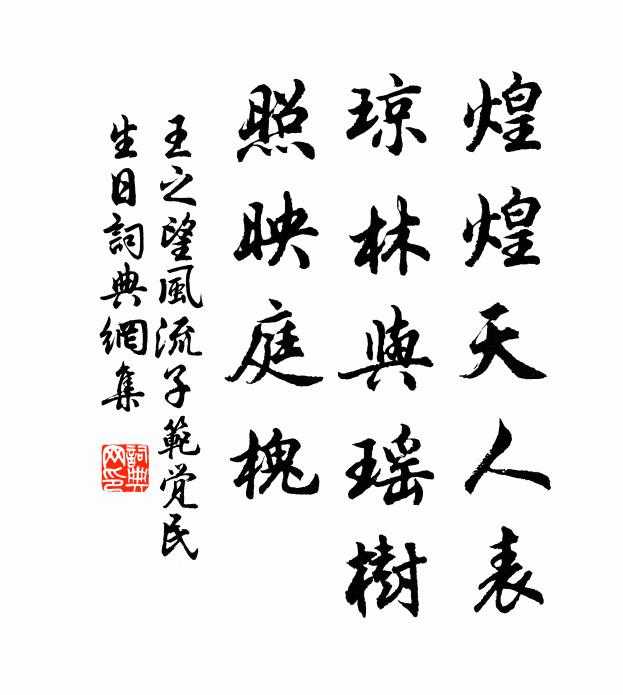 煌煌天人表
琼林與瑶樹
照映庭槐
王之望風流子範覚民
生日詞典網集
詞典
网印